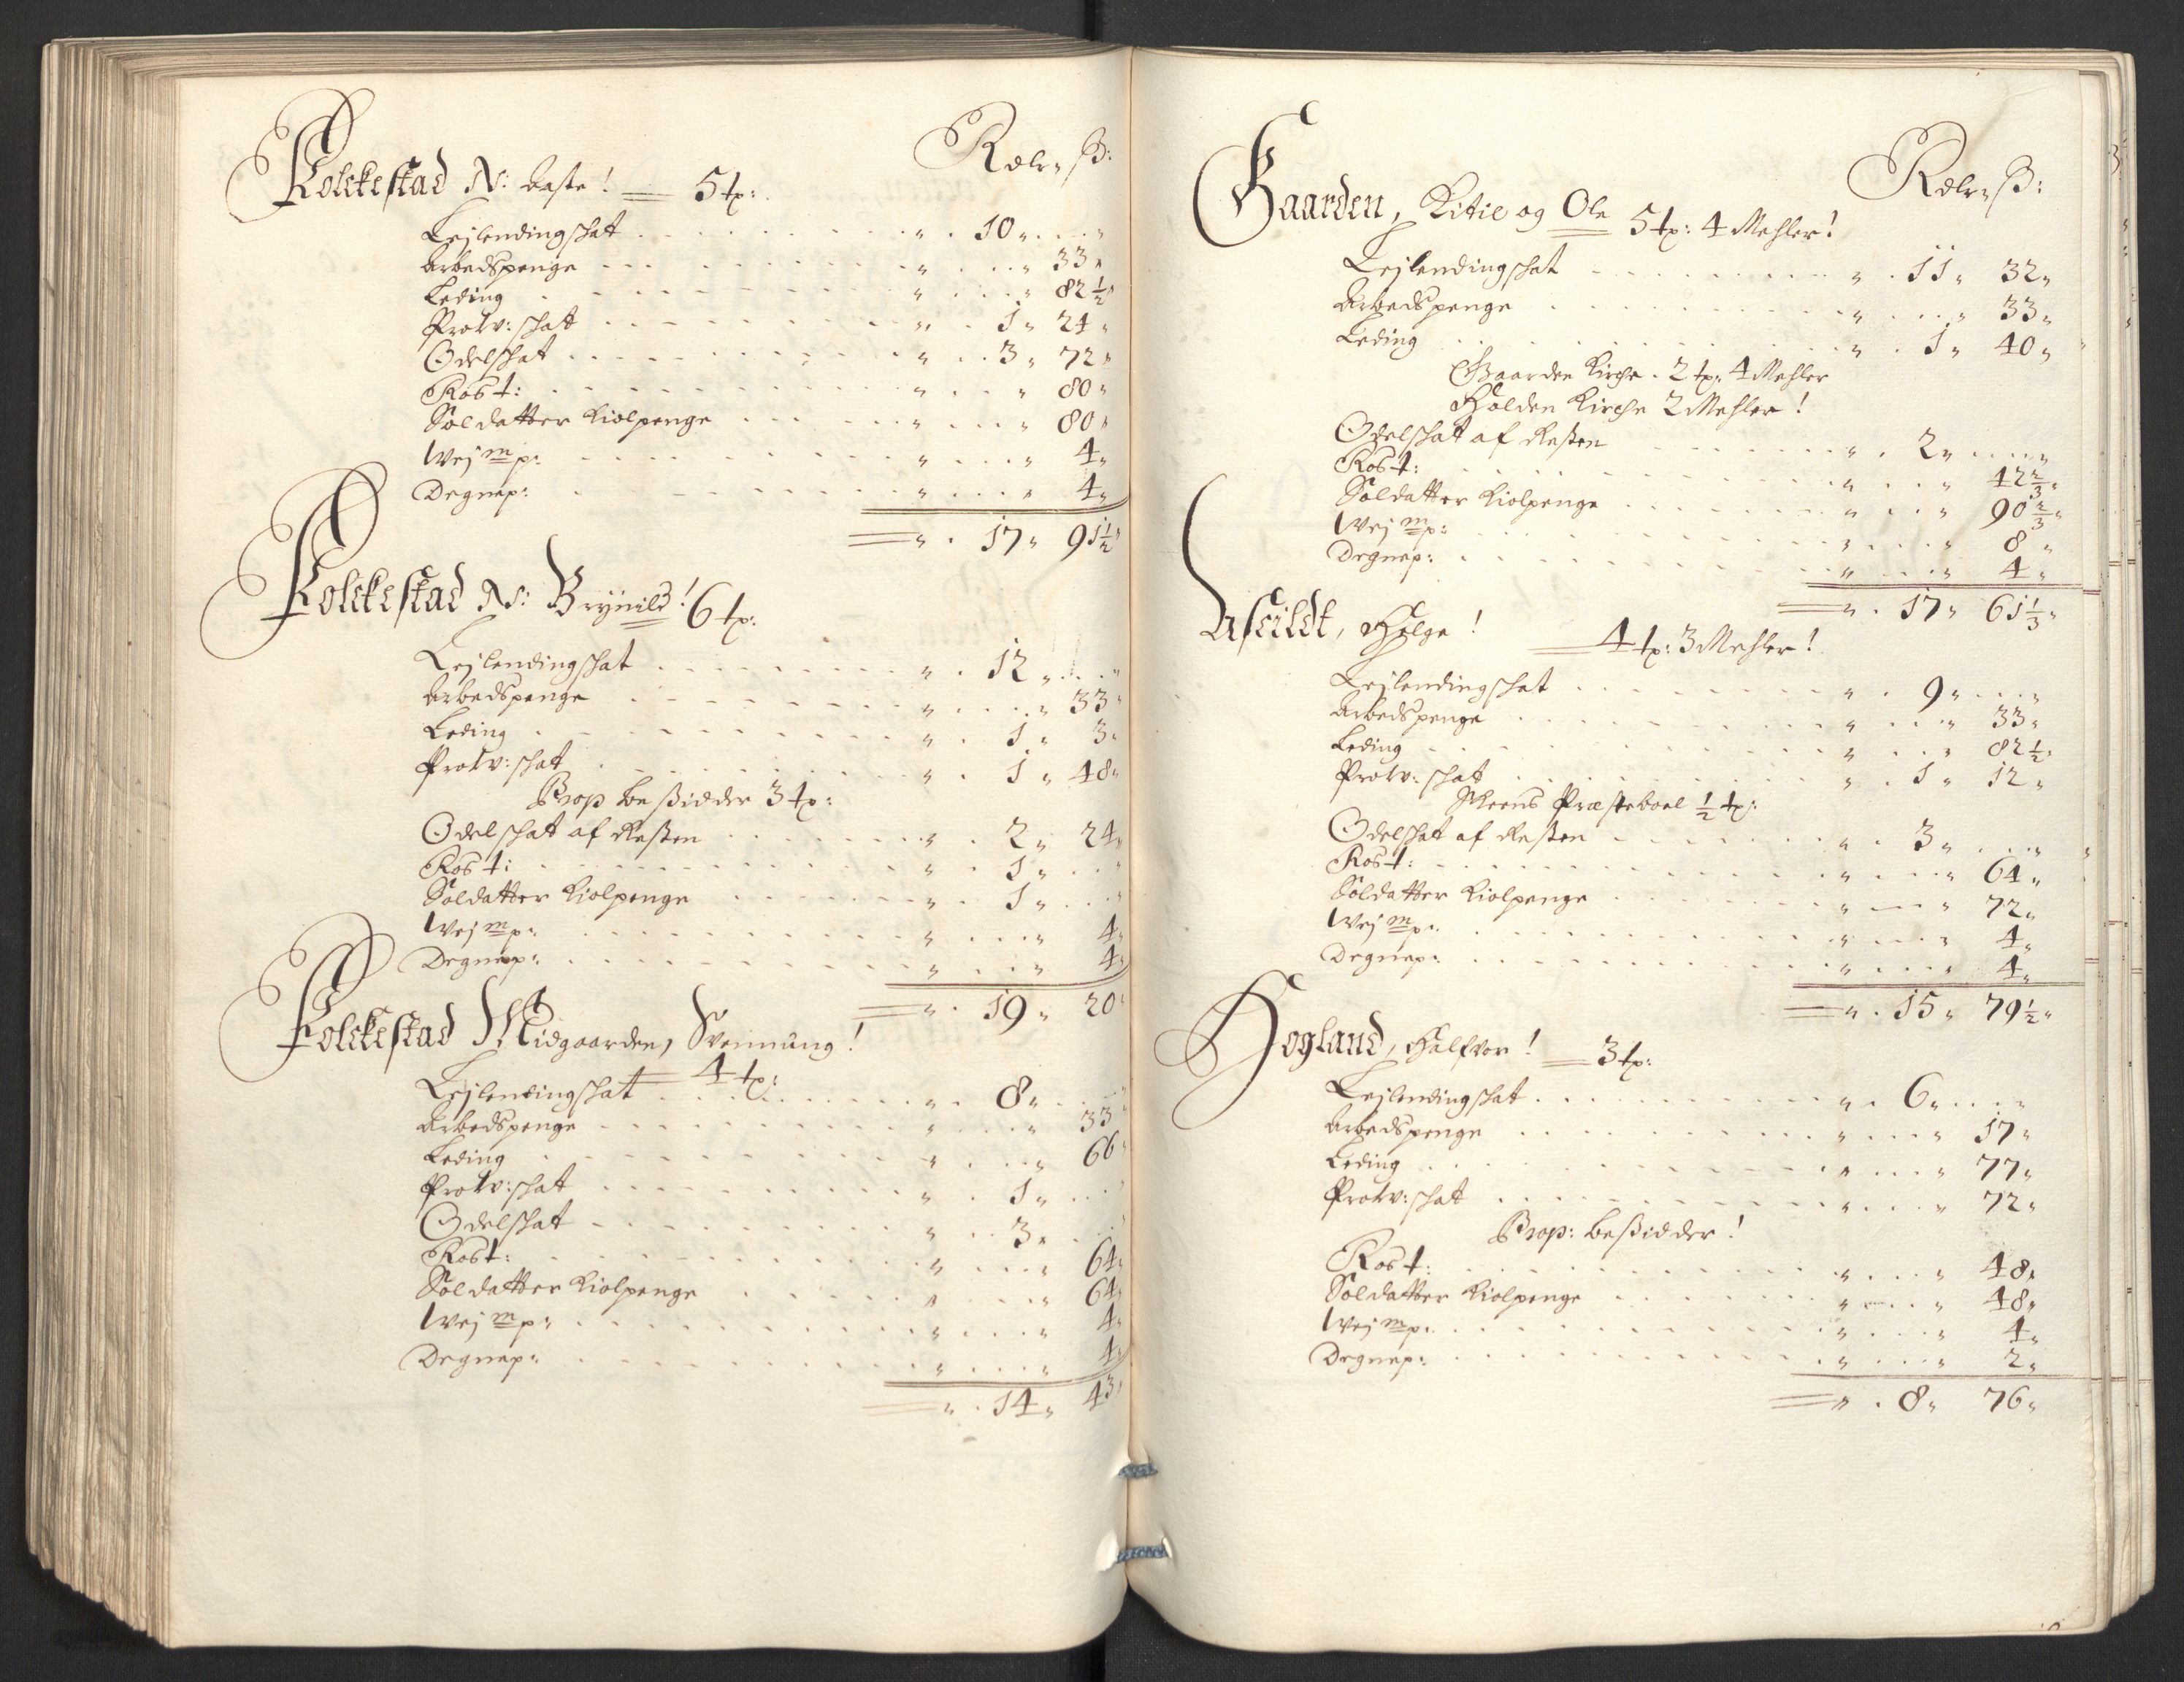 Rdlr„ ß:
Folckestad N: Aaste! 5 tp:
Lejlendingschat „ 10„
Arbedspenge „ „ 33„
Leding „ „ 82½„
Prow: schat „ 1„ 24„
Odelschat „ 3„ 72„
Ros t: „ „ 80„
Soldatter Kiolpenge „ „ 80„
Wej mp: „ „ 4„
Degnep: „ „ 4„
„ 17„ 91½„
Folckestad N: Brynild! 6 tp:
Lejlendingschat „ 12„
Arbedspenge „ „ 33„
Leding „ 1„ 3„
Prow: schat „ 1„ 48„
Prop beßidder 3 tp:
Odelschat af Resten „ 2„ 24„
Ros t: „ 1„
Soldatter Kiolpenge „ 1„
Wej mp: „ „ 4„
Degnep: „ „ 4„
„ 19„ 20„
Folckestad Midgaarden, Svennung!
4 tp:
Lejlendingschat „ 8„
Arbedspenge „ „ 33„
Leding „ „ 66„
Prow: schat „ 1„
Odelschat „ 3„
Ros t: „ „ 64„
Soldatter Kiolpenge „ „ 64„
Wej mp: „ „ 4„
Degnep: „ „ 4„
„ 14„ 43„
Rdlr„ ß:
Gaarden, Kitil og Ole 5 tp: 4 Mehler!
Lejlendingschat „ 11„ 32„
Arbedspenge „ „ 33„
Leding „ 1„ 40„
Gaarden Kirche 2 tp: 4 Mehler
Holden Kirche 2 Mehler!
Odelschat af Resten „ 2„
Ros t: „ „ 42⅔„
Soldatter Kiolpenge „ „ 90⅔„
Wej mp: „ „ 8„
Degnep: „ „ 4„
„ 17„ 61⅓„
Aseildt, Helge! 4 tp: 3 Mehler!
Lejlendingschat „ 9„
Arbedspenge „ „ 33„
Leding „ „ 82½„
Prow: schat „ 1„ 12„
Skeens Præsteboel ½ tp:
Odelschat af Resten „ 3„
Ros t: „ „ 64„
Soldatter Kiolpenge „ „ 72„
Wej mp: „ „ 4„
Degnep: „ „ 4„
„ 15„ 79½„
Hogland, Halfvor! 3 tp:
Lejlendingschat „ 6„
Arbedspenge „ „ 17„
Leding „ „ 77„
Prow: schat „ „ 72„
Prop: beßidder!
Ros t: „ „ 48„
Soldatter Kiolpenge „ „ 48„
Wej mp: „ „ 4„
Degnep: „ „ 2„
„ 8„ 76„